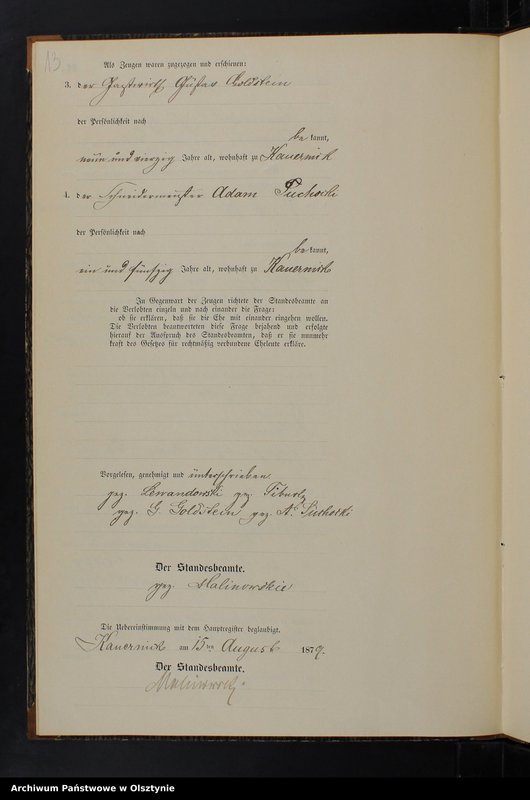 13
Als Zeugen waren zugezogen und erschienen:
3. der Gastwirth Gustav Goldstein
der Persönlichkeit nach
be kannt,
neun und vierzig Jahre alt, wohnhaft zu Kauernik
4. der Schneidermeister Adam Suchocki
der Persönlichkeit nach
be kannt,
ein und fünfzig Jahre alt, wohnhaft zu Kauernik
In Gegenwart der Zeugen richtete der Standesbeamte an
die Verlobten einzeln und nach einander die Frage:
ob sie erklären, daß sie die Ehe mit einander eingehen wollen.
Die Verlobten beantworteten diese Frage bejahend und erfolgte
hierauf der Ausspruch des Standesbeamten, daß er sie nunmehr
kraft des Gesetzes für rechtmäßig verbundene Eheleute erkläre.
Vorgelesen, genehmigt und unterschrieben
gez. Lewandowski gez.
gez. G. Goldstein gez. A. Suchocki
Der Standesbeamte.
gez. Malinowski
Die Uebereinstimmung mit dem Hauptregister beglaubigt.
Kauernik am 15ten August 1879.
Der Standesbeamte.
Malinowski.
Archiwum Państwowe w Olsztynie